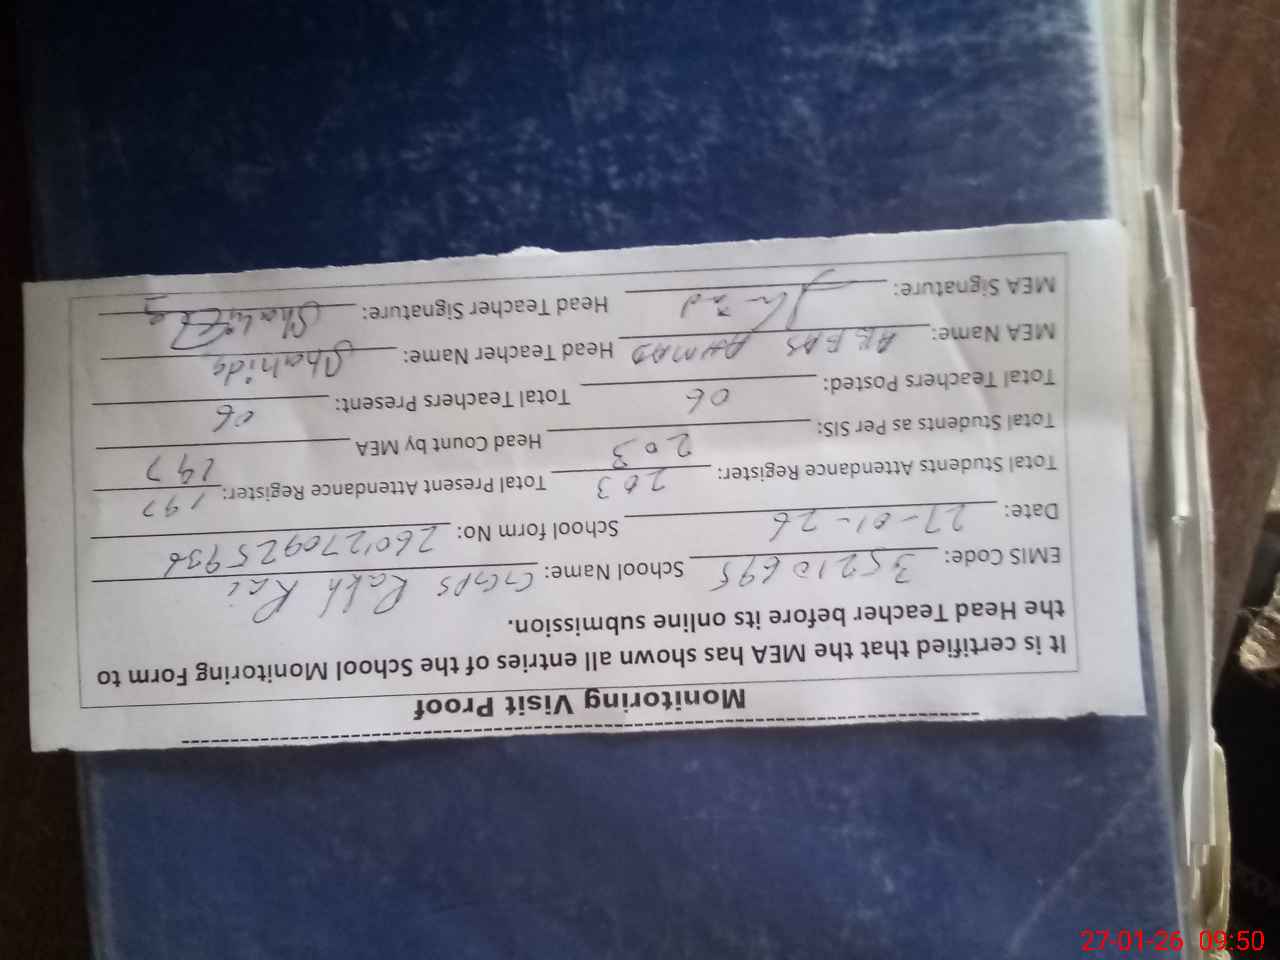 Monitoring Visit Proof
It is certified that the MEA has shown all entries of the School Monitoring Form to
the Head Teacher before its online submission.
EMIS Code: 35210695 School Name: GGPS Rakh Rai
Date: 27-01-26 School form No: 2601270925936
Total Students Attendance Register: 203 Total Present Attendance Register: 197
Total Students as Per SIS: 203 Head Count by MEA 197
Total Teachers Posted: 06 Total Teachers Present: 06
MEA Name: ABBAS AHMAD Head Teacher Name: Shahida
MEA Signature: Head Teacher Signature: Shahida
27-01-26 09:50